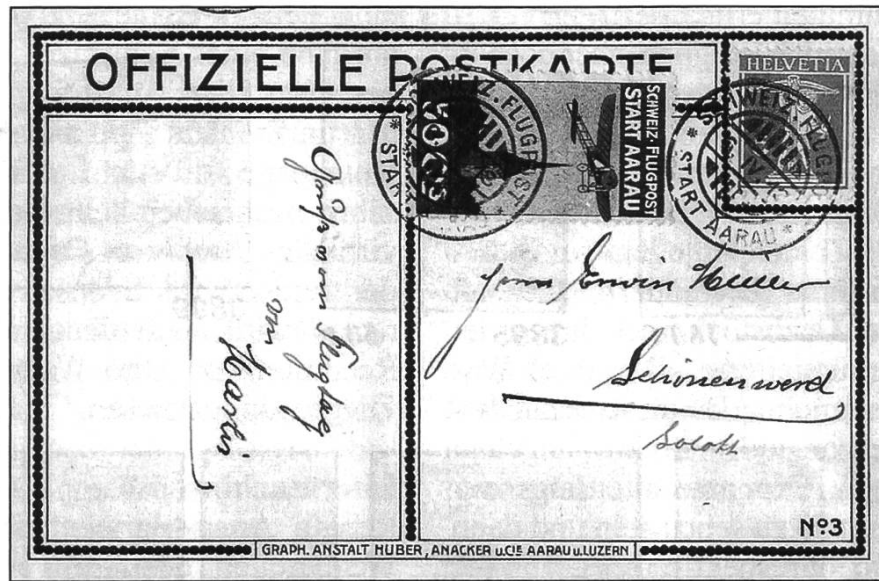 OFFIZIELLE POSTKARTE
HELVETIA
SCHWEIZ. FLUGPOST
START AARAU
50 CTS
SCHWEIZ. FLUGPOST
* START
SCHWEIZ. FLUG
* START AARAU *
vom Flugtag
von
Herrn Erwin
Schönenwerd
Soloth
Nº3
GRAPH. ANSTALT HUBER, ANACKER u. CIE AARAU u. LUZERN